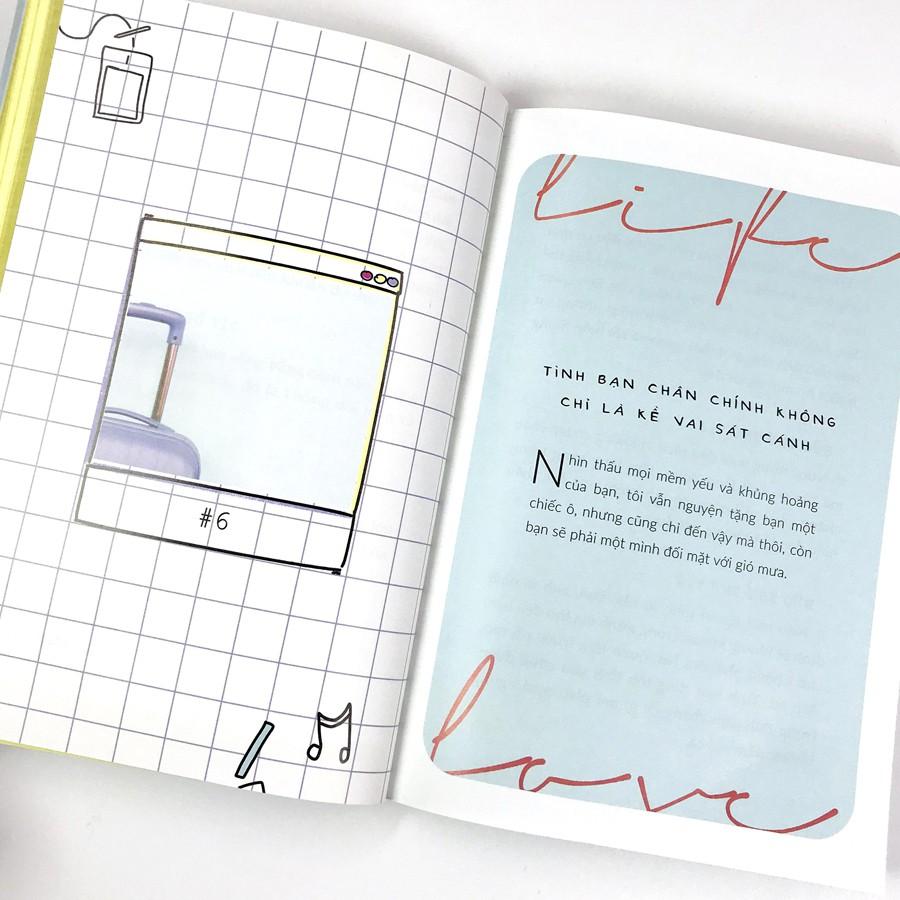 #6
life
TÌNH BẠN CHÂN CHÍNH KHÔNG
CHỈ LÀ KỀ VAI SÁT CÁNH
Nhìn thấu mọi mềm yếu và khủng hoảng
của bạn, tôi vẫn nguyện tặng bạn một
chiếc ô, nhưng cũng chỉ đến vậy mà thôi, còn
bạn sẽ phải một mình đối mặt với gió mưa.
love